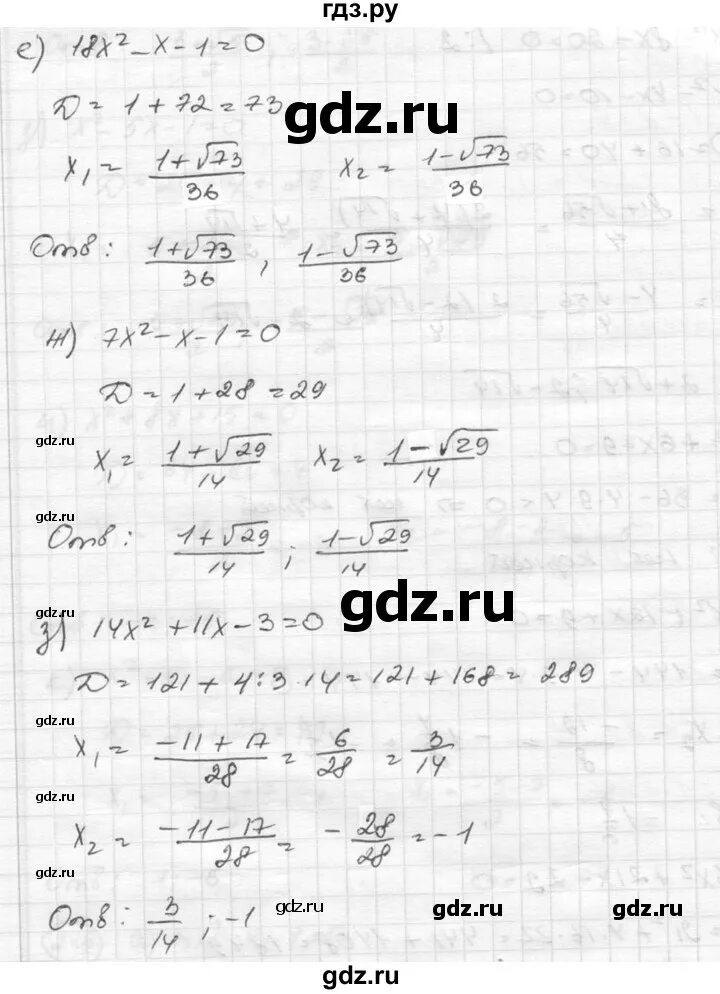 гдз.ру
е) 18x² - x - 1 = 0
D = 1 + 72 = 73
gdz.ru
x₁ = (1+√73)/36    x₂ = (1-√73)/36
Отв: (1+√73)/36 , (1-√73)/36
ж) 7x² - x - 1 = 0
D = 1 + 28 = 29
gdz.ru
x₁ = (1+√29)/14    x₂ = (1-√29)/14
gdz.ru
Отв: (1+√29)/14 ; (1-√29)/14
gdz.ru
gdz.ru
з) 14x² + 11x - 3 = 0
D = 121 + 4·3·14 = 121 + 168 = 289
gdz.ru
x₁ = (-11+17)/28 = 6/28 = 3/14
gdz.ru
x₂ = (-11-17)/28 = -28/28 = -1
gdz.ru
Отв: 3/14 ; -1
gdz.ru gdz.ru gdz.ru
gdz.ru